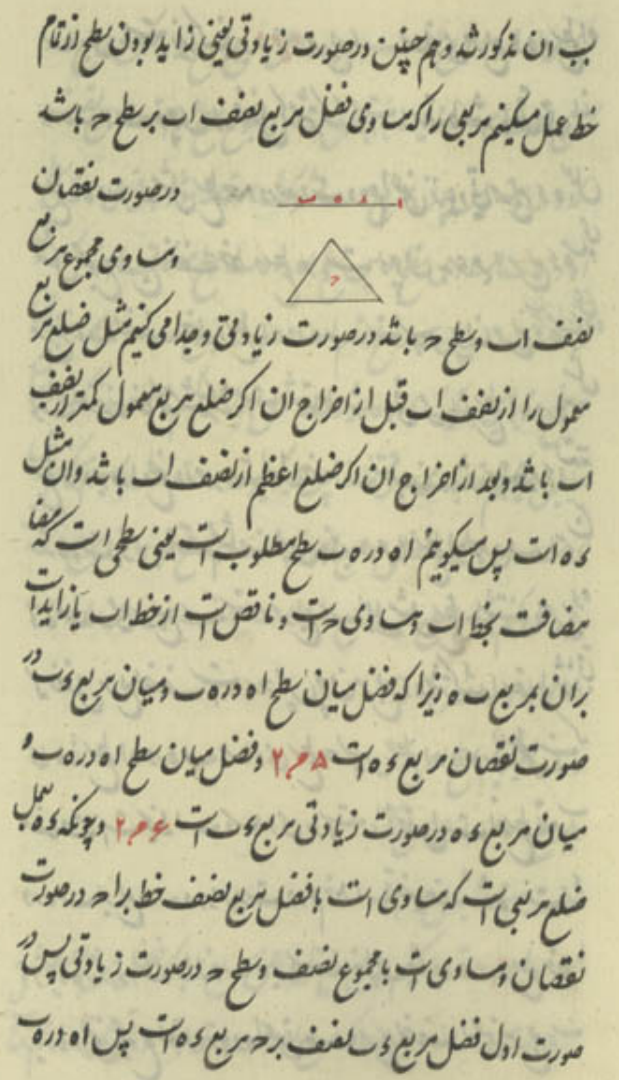 ب ان مذکور شد و هم چنین درصورت زیادتی یعنی زاید بودن سطح از تمام
خط عمل میکنیم مربعی را که مساوی فضل مربع نصف اب بر سطح ح باشد
درصورت نقصان
ا ء ه ب
و مساوی مجموع مربع
ح
نصف اب و سطح ح باشد درصورت زیادتی و جدا می کنیم مثل ضلع مربع
معمول را از نصف اب قبل از اخراج ان اکر ضلع مربع معمول کمتر از نصف
اب باشد و بعد از اخراج ان اکر ضلع اعظم از نصف اب باشد و ان مثل
ء ه است پس میکوییم ا ه در ه ب سطح مطلوب است یعنی سطحی است که مضا
مضافت بخط اب و مساوی ح است و ناقص است از خط اب یا زاید است
بران بمربع ب ه زیرا که فضل میان سطح ا ه در ه ب و میان مربع ء ب در
صورت نقصان مربع ء ه است ۵ م ۲ و فضل میان سطح ا ه در ه ب و
میان مربع ء ه درصورت زیادتی مربع ء ب است ۶ م ۲ و چونکه ء ه بعمل
ضلع مربعی است که مساوی است با فضل مربع نصف خط بر ا ح درصورت
نقصان و مساوی است با مجموع نصف و سطح ح درصورت زیادتی پس در
صورت اول فضل مربع ء ب نصف بر ح مربع ء ه است پس ا ه در ه ب